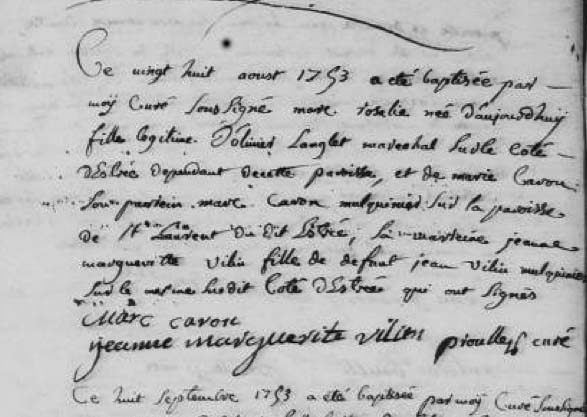 Ce vingt huit aoust 1753 a eté baptisée par
moÿ Curé Soussigné marc roselie née D'aujourdhuÿ
fille legitime D'olivier Langlet marechal Sur le Coté
D'Estrée dependant de cette paroisse, et de marie Caron
Son parrein marc Caron mulquinier Sur la paroisse
de St Laurent du dit Estrée, Sa marreine jeanne
margueritte Vilin fille de defunt jean Vilin mulquinier
Sur le meme Susdit Coté D'Estrées qui ont Signés
Marc caron
jeanne marguerite vilin curé
Ce huit Septembre 1753 a été baptisée par moÿ Curé